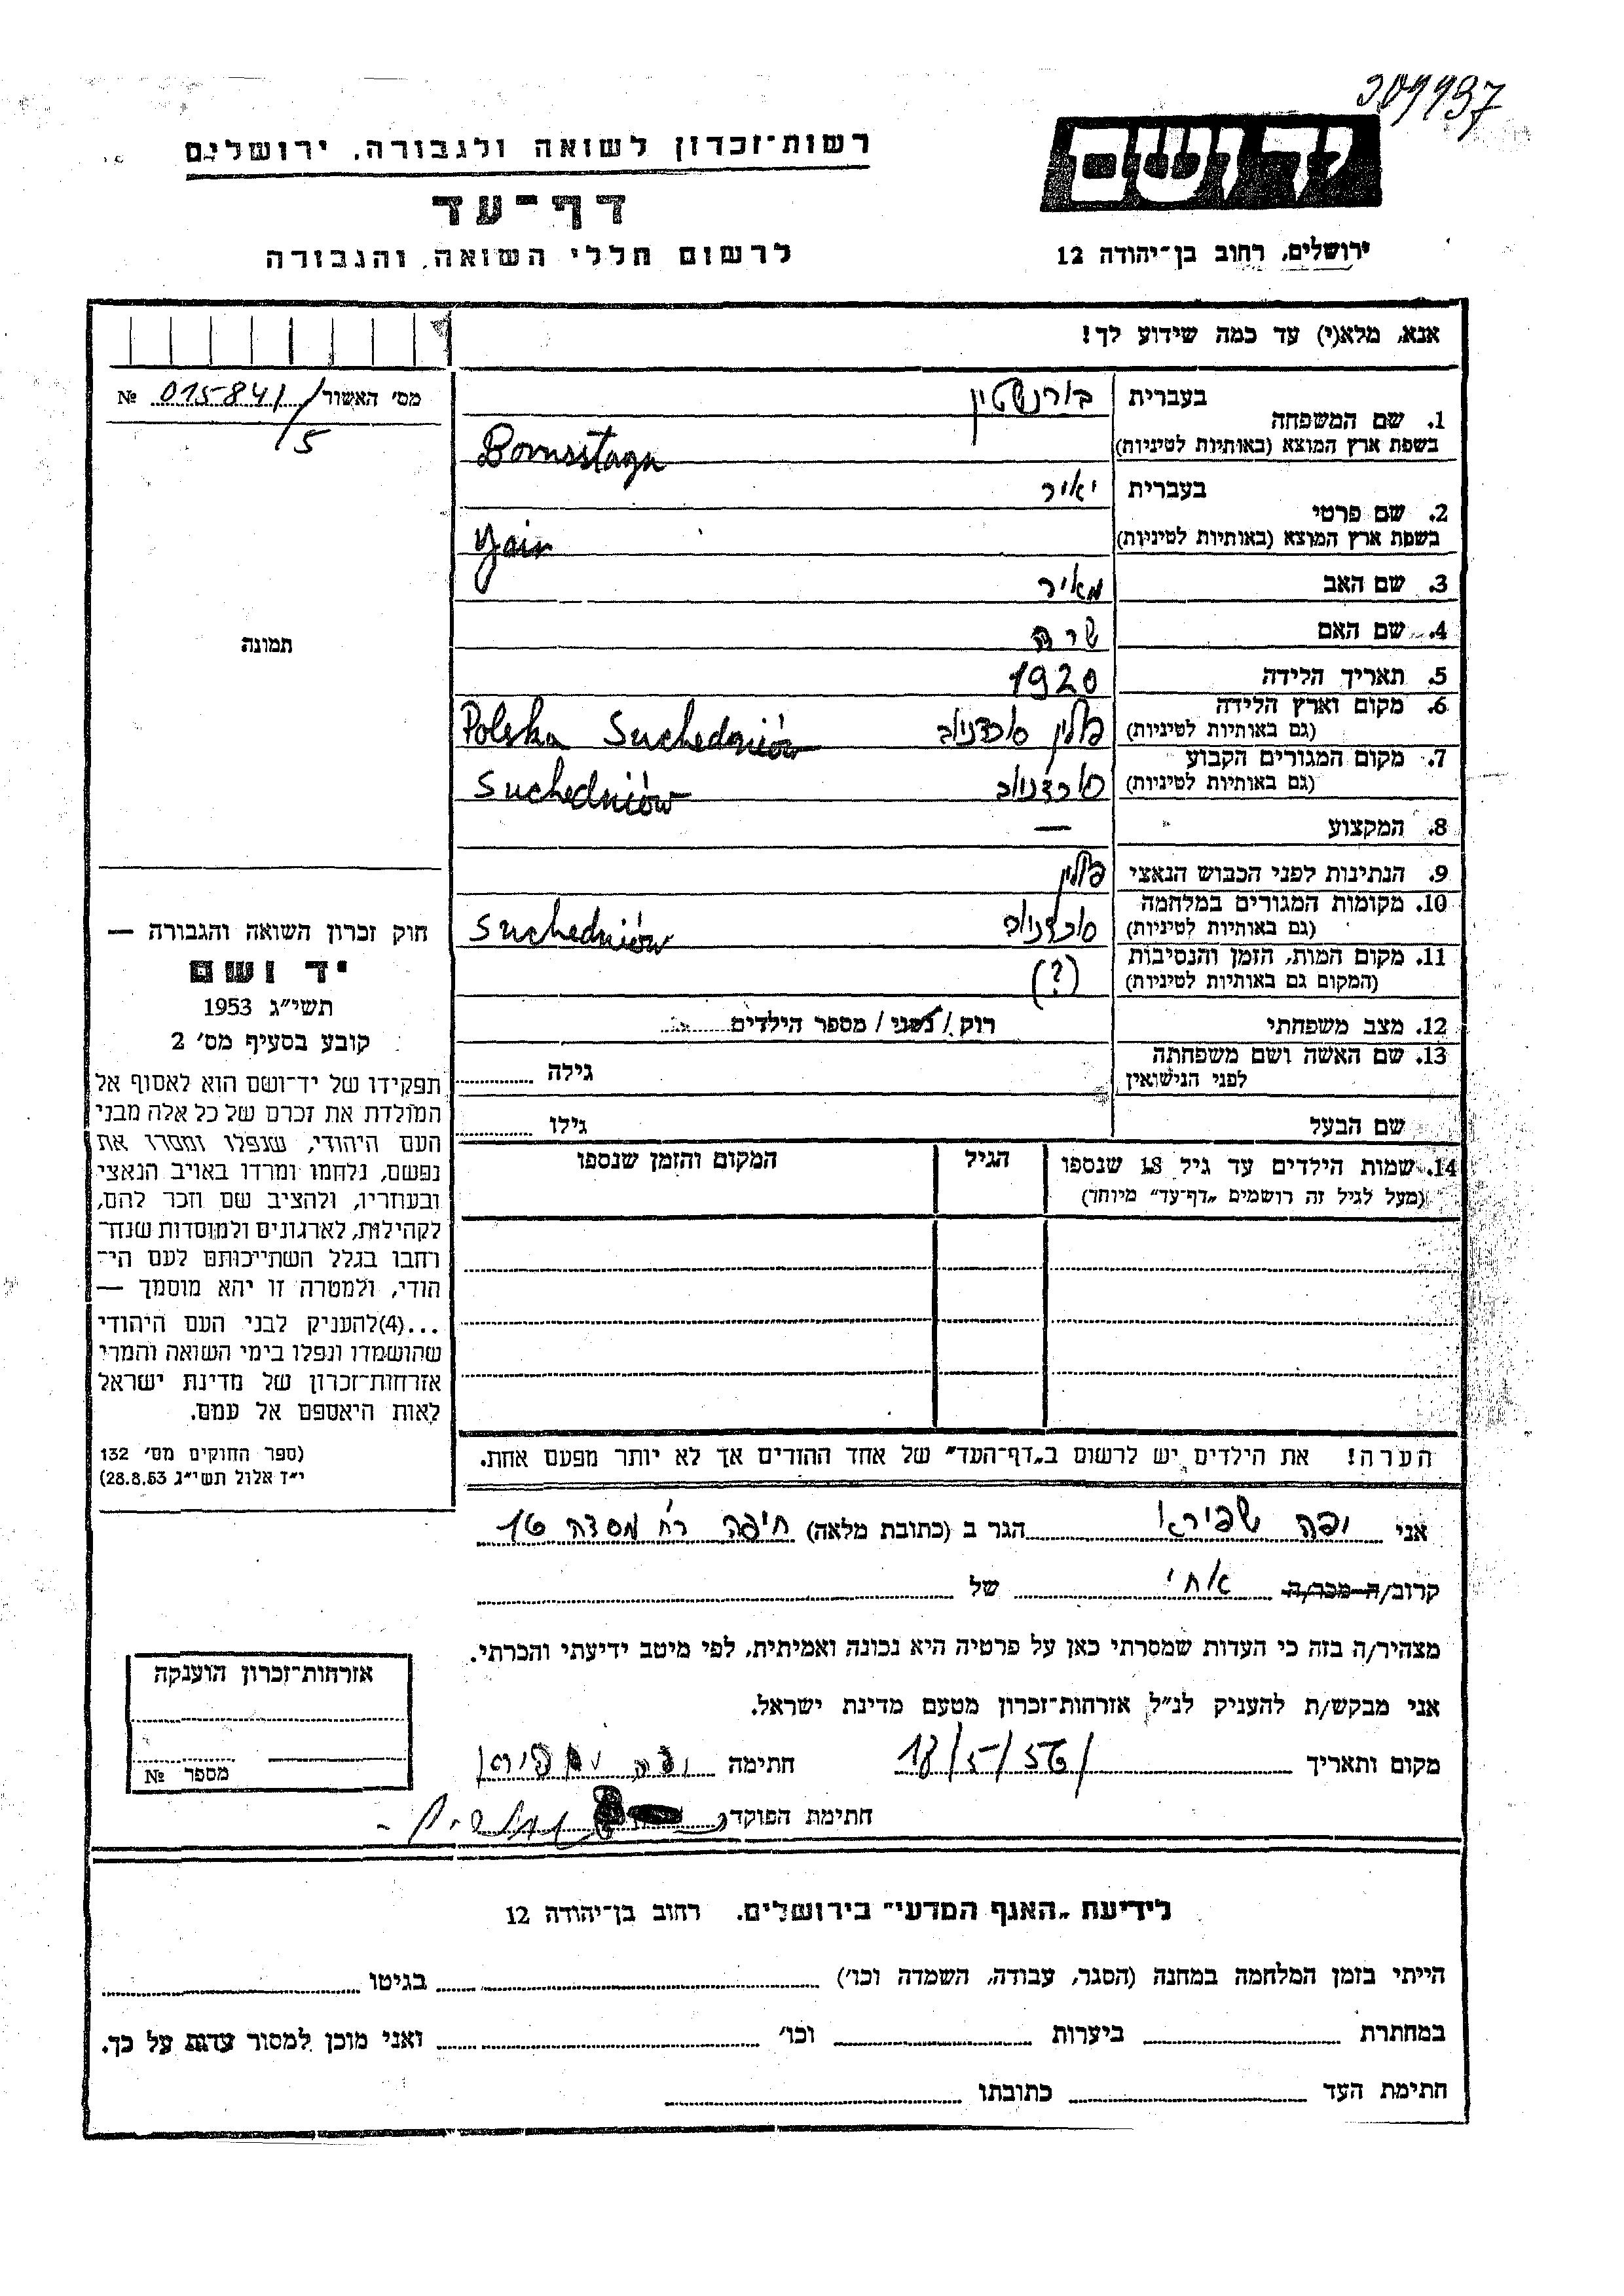 309997
רשות־זכרון לשואה ולגבורה, ירושלים
יד ושם
דף־עד
לרשום חללי השואה והגבורה
ירושלים, רחוב בן־יהודה 12
אנא, מלא(י) עד כמה שידוע לך!
מס' האשור 015841/5 №
1. שם המשפחה בעברית בורנשטין
בשפת ארץ המוצא (באותיות לטיניות) Bornsstagn
2. שם פרטי בעברית יאיר
בשפת ארץ המוצא (באותיות לטיניות) Yair
3. שם האב מאיר
4. שם האם שרה
5. תאריך הלידה 1920
6. מקום וארץ הלידה פולין סוכדניוב Polska Suchedniów
(גם באותיות לטיניות)
7. מקום המגורים הקבוע סוכדניוב Suchedniów
(גם באותיות לטיניות)
8. המקצוע —
9. הנתינות לפני הכבוש הנאצי פולין
10. מקומות המגורים במלחמה סוכדניוב Suchedniów
(גם באותיות לטיניות)
11. מקום המות, הזמן והנסיבות (?)
(המקום גם באותיות לטיניות)
12. מצב משפחתי רוק / נשוי / מספר הילדים
13. שם האשה ושם משפחתה גילה
לפני הנישואין
שם הבעל גילו
14. שמות הילדים עד גיל 18 שנספו הגיל המקום והזמן שנספו
(מעל לגיל זה רושמים „דף־עד" מיוחד)
הערה! את הילדים יש לרשום ב„דף־העד" של אחד ההורים אך לא יותר מפעם אחת.
תמונה
חוק זכרון השואה והגבורה —
יד ושם
תשי"ג 1953
קובע בסעיף מס' 2
תפקידו של יד־ושם הוא לאסוף אל
המולדת את זכרם של כל אלה מבני
העם היהודי, שנפלו ומסרו את
נפשם, נלחמו ומרדו באויב הנאצי
ובעוזריו, ולהציב שם וזכר להם,
לקהילות, לארגונים ולמוסדות שנח־
רבו בגלל השתייכותם לעם הי־
הודי, ולמטרה זו יהא מוסמך —
...(4)להעניק לבני העם היהודי
שהושמדו ונפלו בימי השואה והמרי
אזרחות־זכרון של מדינת ישראל
לאות היאספם אל עמם.
(ספר החוקים מס' 132
י"ד אלול תשי"ג 28.8.53)
אני יפה שפירא הגר ב (כתובת מלאה) חיפה רח' מסדה 16
קרוב/ה מכר/ה אחי של
מצהיר/ה בזה כי העדות שמסרתי כאן על פרטיה היא נכונה ואמיתית, לפי מיטב ידיעתי והכרתי.
אני מבקש/ת להעניק לנ"ל אזרחות־זכרון מטעם מדינת ישראל.
מקום ותאריך 18/5/56 חתימה יפה שפירא
חתימת הפוקד
אזרחות־זכרון הוענקה
מספר №
לידיעת „האגף המדעי" בירושלים, רחוב בן־יהודה 12
הייתי בזמן המלחמה במחנה (הסגר, עבודה, השמדה וכו') בגיטו
במחתרת ביערות וכו' ואני מוכן למסור עדות על כך.
חתימת העד כתובתו